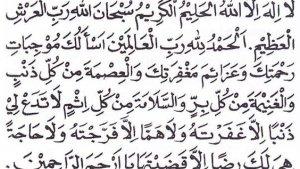 لَا إِلَهَ إِلَّا اللهُ الْحَلِيْمُ الْكَرِيْمُ سُبْحَانَ اللهِ رَبِّ الْعَرْشِ
الْعَظِيْمِ. اَلْحَمْدُ لِلّٰهِ رَبِّ الْعَالَمِيْنَ اَسْأَلُكَ مُوْجِبَاتِ
رَحْمَتِكَ وَعَزَائِمَ مَغْفِرَتِكَ وَالْعِصْمَةَ مِنْ كُلِّ ذَنْبٍ
وَالْغَنِيْمَةَ مِنْ كُلِّ بِرٍّ وَالسَّلَامَةَ مِنْ كُلِّ اِثْمٍ لَا تَدَعْ لِي
ذَنْبًا اِلَّا غَفَرْتَهُ وَلَا هَمًّا اِلَّا فَرَّجْتَهُ وَلَا حَاجَةً
هِيَ لَكَ رِضًا اِلَّا قَضَيْتَهَا يَا اَرْحَمَ الرَّاحِمِيْنَ.